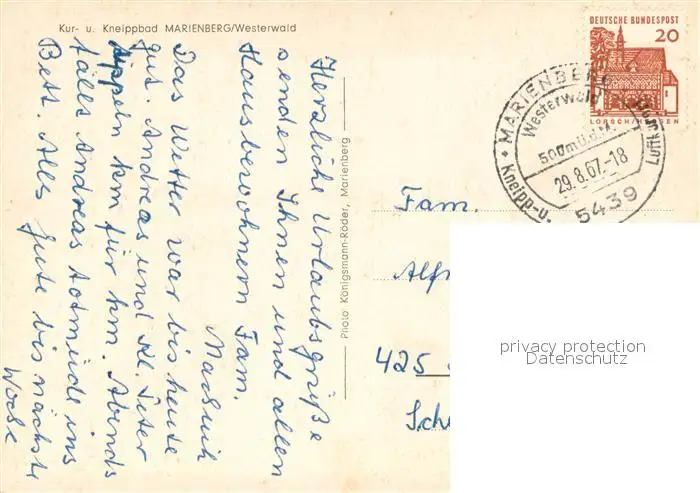 Kur- u. Kneippbad MARIENBERG/Westerwald
Herzliche Urlaubsgrüße
senden Ihnen und allen
Hausbewohnern Fam.
Das Wetter war bis heute
gut. Andreas und Kl. Peter
tippeln km für km. Abends
fällt Andreas totmüde ins
Bett. Alles Gute bis nächste
Woche
Photo Königsmann-Röder, Marienberg
DEUTSCHE BUNDESPOST
20
LORSCH/HESSEN
MARIENBERG
Westerwald
500mü.d.M.
29.8.67.-18
5439
Kneipp-u.
Luftkurort
Fam.
Alf
425
Sch
privacy protection
Datenschutz